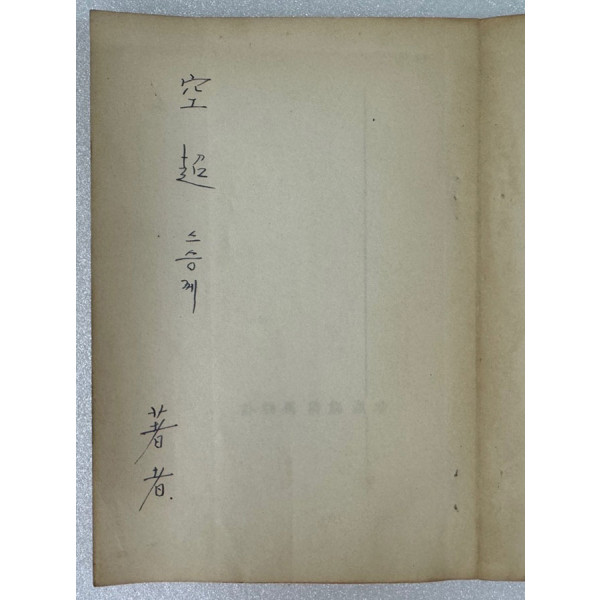 空超 스승께
著者.